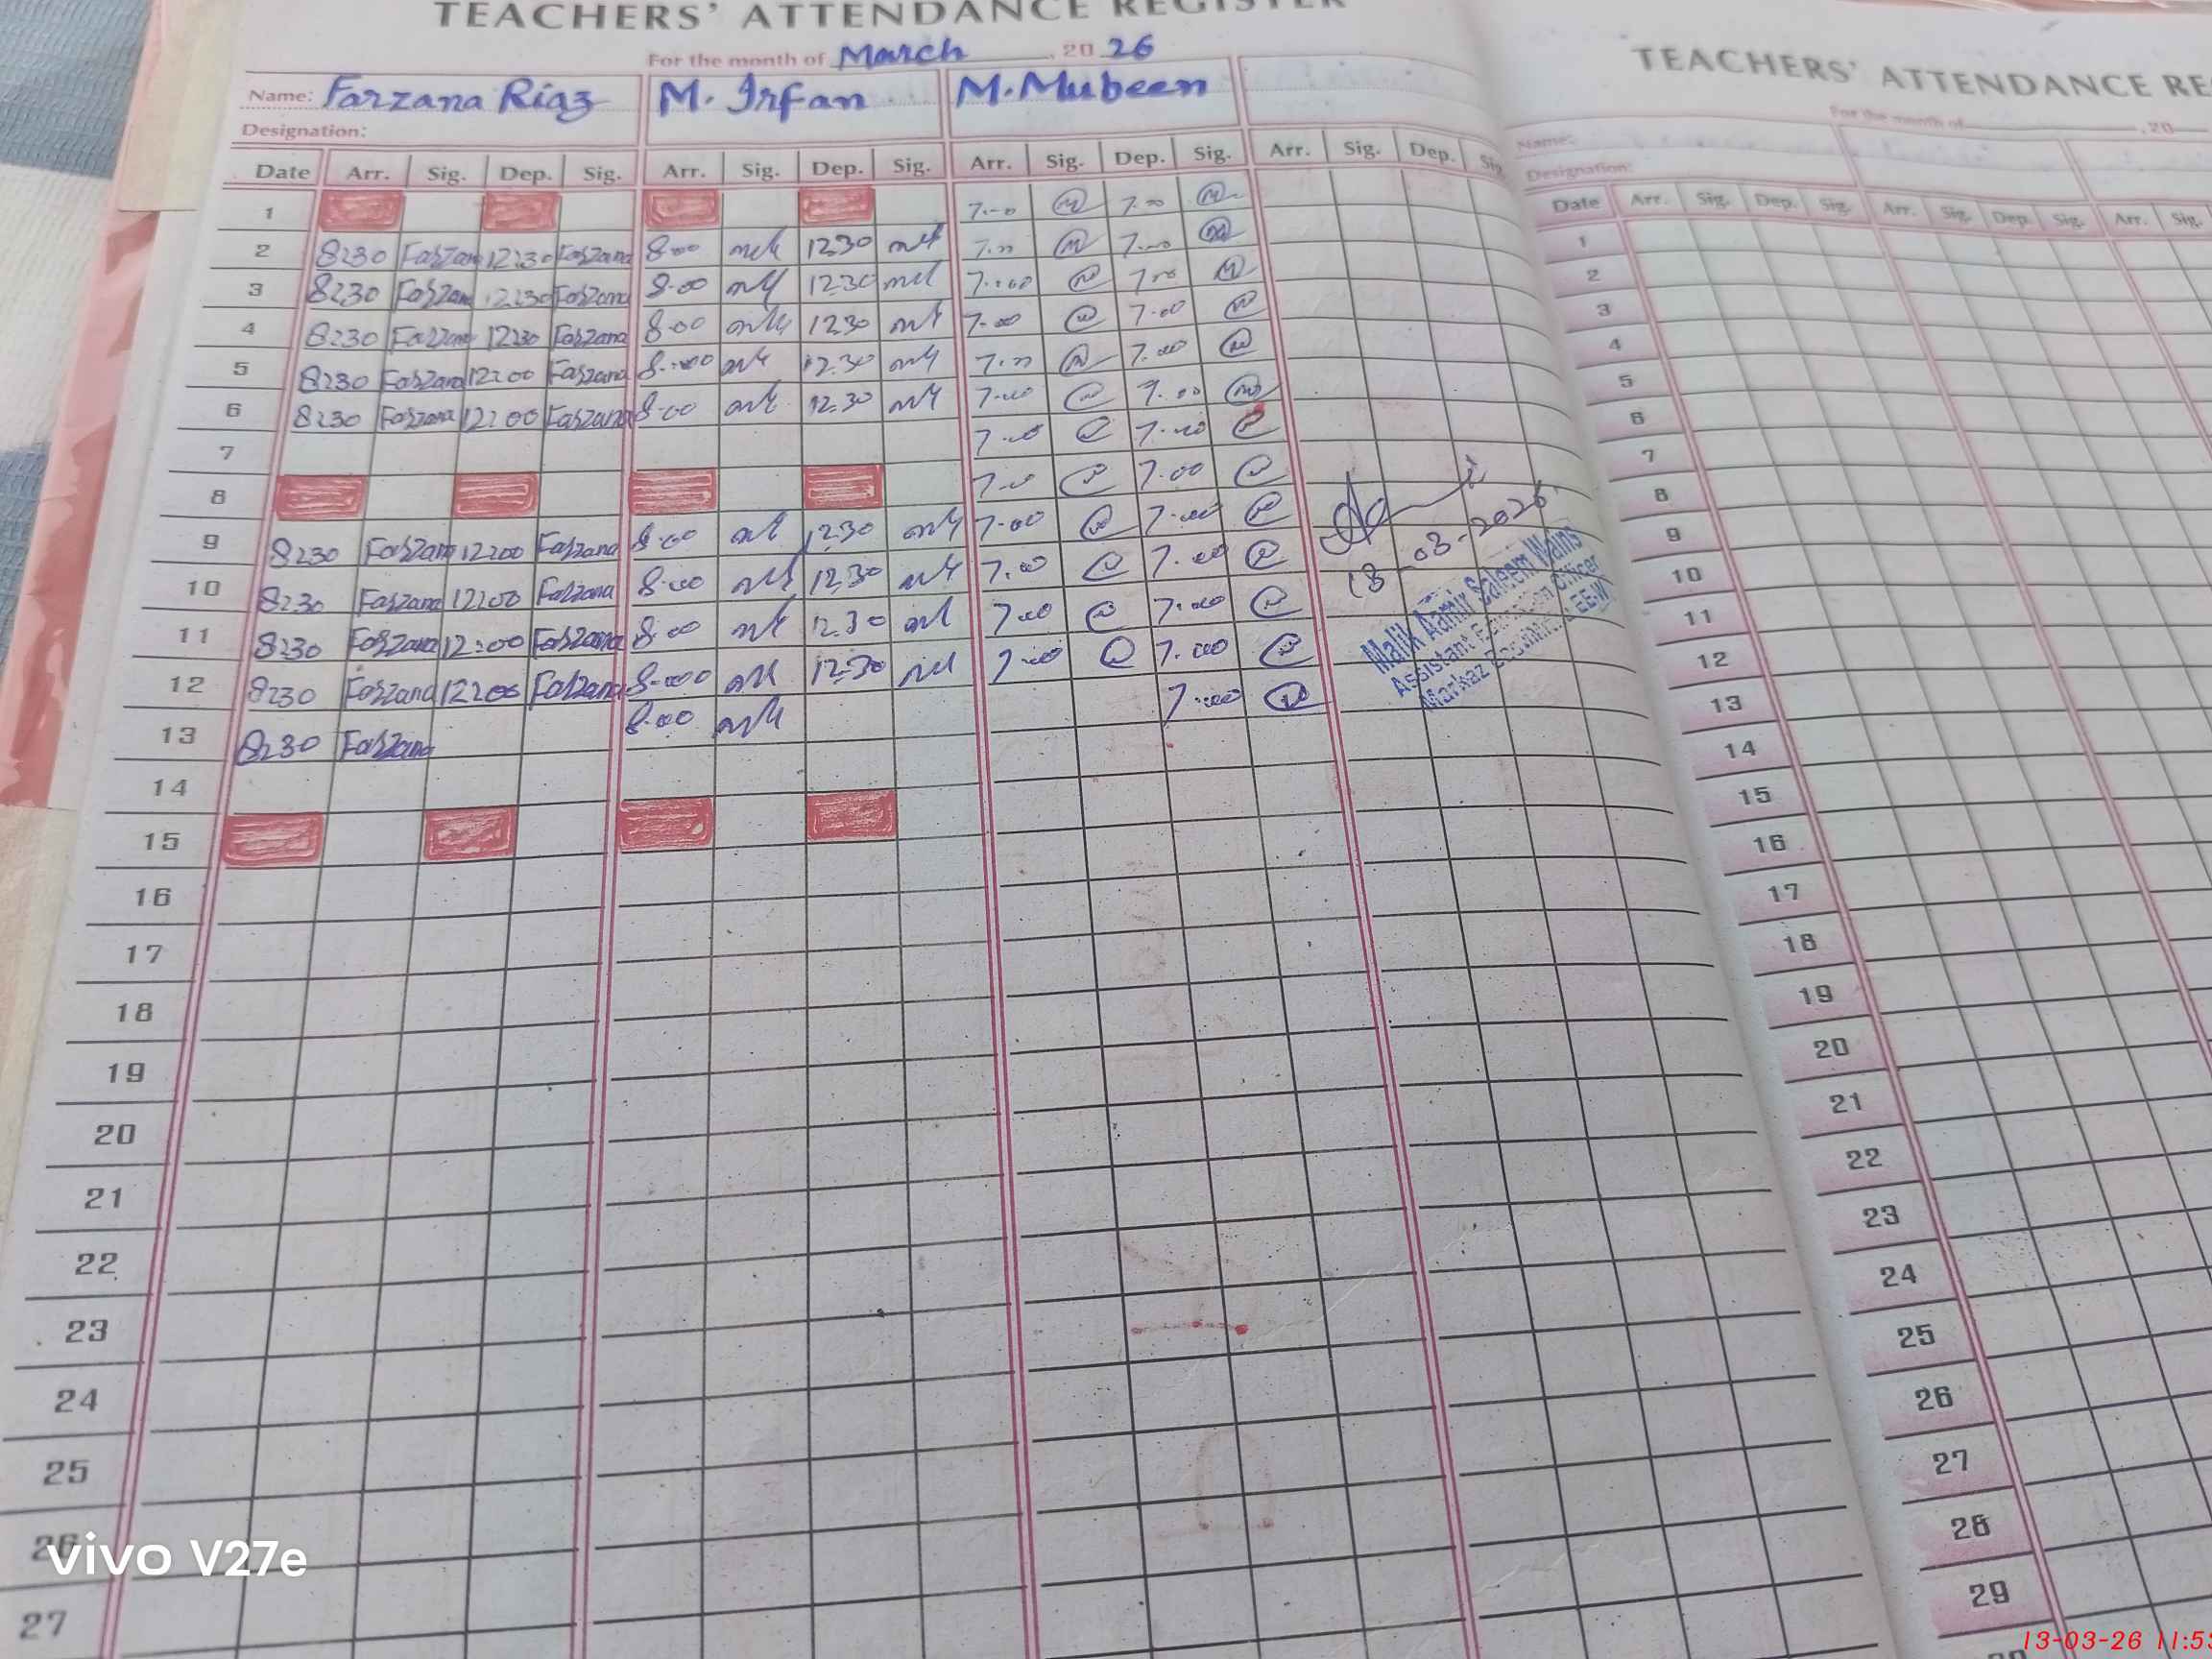 TEACHERS' ATTENDANCE REGISTER
For the month of March, 2026
Name: Farzana Riaz M. Irfan M. Mubeen
Designation:
Date Arr. Sig. Dep. Sig. Arr. Sig. Dep. Sig. Arr. Sig. Dep. Sig. Arr. Sig. Dep. Sig.
1 7.00 7.00
2 8:30 Farzana 12:30 Farzana 8.00 12.30 7.00 7.00
3 8:30 Farzana 12:30 Farzana 8.00 12.30 7.00 7.00
4 8:30 Farzana 12:30 Farzana 8.00 12.30 7.00 7.00
5 8:30 Farzana 12:00 Farzana 8.00 12.30 7.00 7.00
6 8:30 Farzana 12:00 Farzana 8.00 12.30 7.00 7.00
7 7.00 7.00
8 7.00 7.00
9 8:30 Farzana 12:00 Farzana 8.00 12.30 7.00 7.00
10 8:30 Farzana 12:00 Farzana 8.00 12.30 7.00 7.00
11 8:30 Farzana 12:00 Farzana 8.00 12.30 7.00 7.00
12 8:30 Farzana 12:00 Farzana 8.00 12.30 7.00 7.00
13 8:30 Farzana 8.00 7.00
14
15
16
17
18
19
20
21
22
23
24
25
26
27
13-03-2026
Malik Aamir Saleem Wains
Assistant Education Officer
Markaz
TEACHERS' ATTENDANCE RE
For the month of , 20
Name:
Designation:
Date Arr. Sig. Dep. Sig. Arr. Sig. Dep. Sig. Arr. Sig.
1
2
3
4
5
6
7
8
9
10
11
12
13
14
15
16
17
18
19
20
21
22
23
24
25
26
27
28
29
vivo V27e
13-03-26 11:53